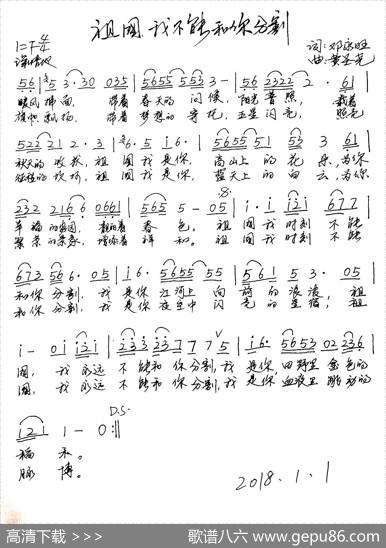 祖国,我不能和你分割
1=F 4/4
深情地
词:邓永旺
曲:黄圣亮
56 | 5 3·30 035 | 5655 553 3- | 56 2322 2· 61 |
暖风拂面, 带着 春天的 问候, 阳光普照, 载着
旗帜飘扬, 带着 梦想的 五星闪亮, 照亮
522 21 2·3 | 6·5 i6· | 565551 53 3 61 |
秋天的 收获, 祖国我是你, 高山上的 花朵, 为你
征程的 祖国我是你, 蓝天上的 白云, 为你
232 216 0661 | 565 5-05 | i·i i2i 677 |
幸福的 春色。 祖国我时刻 不能
祥和。 祖国我时刻 不能
673 566· 05 | i6· 5655 55 | 561 53·05 |
和你分割, 我是你江河上 向前的浪涛, 祖
和你分割, 我是你夜空中 闪亮的星宿, 祖
i- 0i i2i | 233 23 777 5 | i6· 5653 02 236 |
国, 我永远 不能和你分割, 我是你田野里 金色的
国, 我永远 不能和你分割, 我是你血液里 跳动的
D.S.
i2i 1-0 :||
稻禾。
脉搏。
2018.1.1
高清下载 >>>
歌谱八六 www.gepu86.com